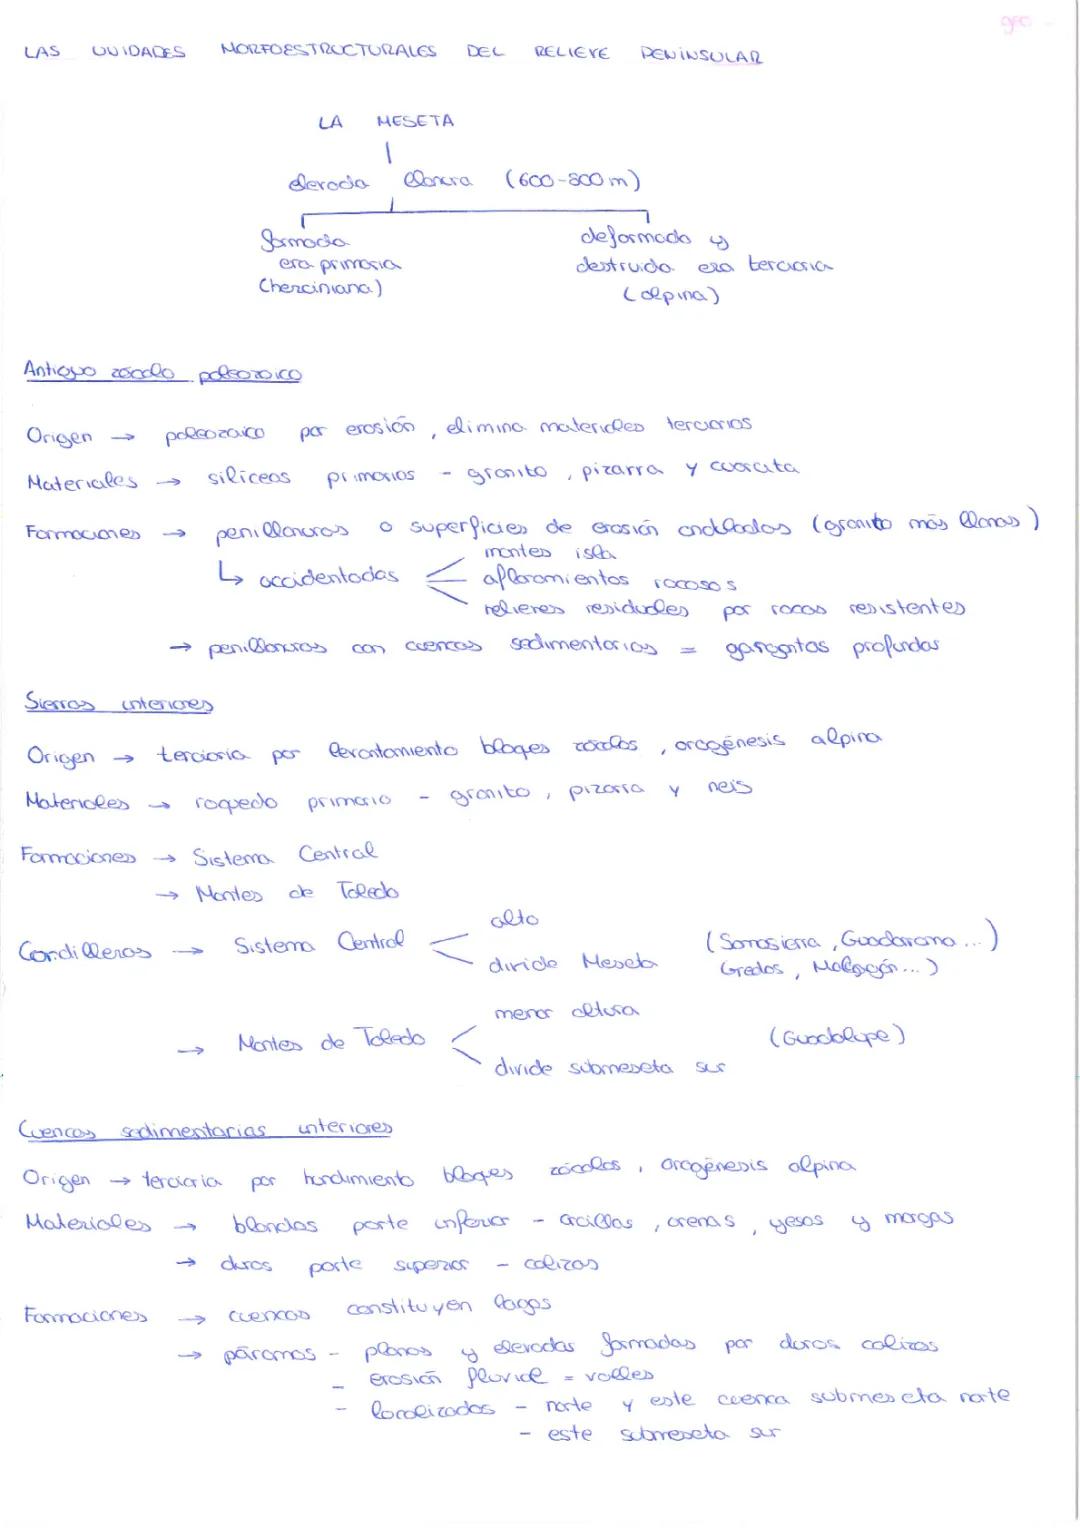 geo
LAS UNIDADES MORFOESTRUCTURALES DEL RELIEVE PENINSULAR
LA MESETA
elevada llanura (600-800 m)
formada era primaria (herciniana)
deformada y destruida era terciaria (alpina)
Antiguo zócalo paleozoico
Origen → paleozoico por erosión, elimina materiales terciarios
Materiales → silíceos primarios - granito, pizarra y cuarcita
Formaciones → penillanuras o superficies de erosión onduladas (granito más llanas)
↳ accidentadas
montes isla
afloramientos rocosos
relieves residuales por rocas resistentes
→ penillanuras con cuencas sedimentarias = gargantas profundas
Sierras interiores
Origen → terciaria por levantamiento bloques zócalos, orogénesis alpina
Materiales → roquedo primario - granito, pizarra y neis
Formaciones → Sistema Central
→ Montes de Toledo
Cordilleras → Sistema Central
alto
divide Meseta
(Somosierra, Guadarrama...)
Gredos, Malagón...)
→ Montes de Toledo
menor altura
divide submeseta sur
(Guadalupe)
Cuencas sedimentarias interiores
Origen → terciaria por hundimiento bloques zócalos, orogénesis alpina
Materiales → blandos parte inferior - arcillas, arenas, yesos y margas
→ duros parte superior - calizas
Formaciones → cuencas constituyen lagos
→ páramos - planos y elevadas formadas por duros calizas
- erosión fluvial = valles
- localizados - norte y este cuenca submeseta norte
- este submeseta sur